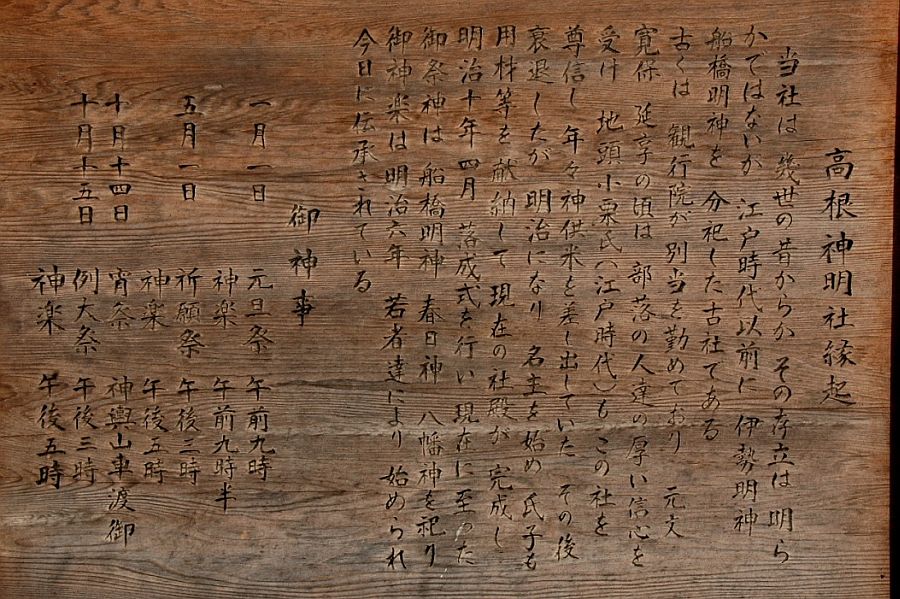 高根神明社縁起
当社は 幾世の昔からか その存立は 明ら
かではないが 江戸時代以前に 伊勢明神
船橋明神を 分祀した古社である
古くは 観行院が別当を勤めており 元文
寛保 延享の頃は 部落の人達の厚い信心を
受け 地頭小栗氏(江戸時代)も この社を
尊信し 年々神供米を差し出していた その後
衰退したが 明治になり 名主を始め 氏子も
用材等を献納して 現在の社殿が 完成し
明治十年四月 落成式を行い 現在に至った
御祭神は 船橋明神 春日神 八幡神を祀り
御神楽は明治六年 若者達により 始められ
今日に伝承されている
御神事
一月一日 元旦祭 午前九時
神楽 午前九時半
五月一日 祈願祭 午後三時
神楽 午後五時
十月十四日 宵祭 神輿山車渡御
十月十五日 例大祭 午後三時
神楽 午後五時